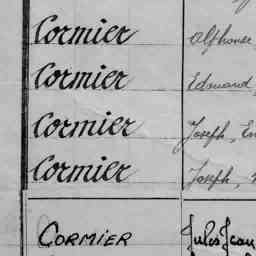 Cormier Alphonse
Cormier Edouard,
Cormier Joseph, Em
Cormier Joseph,
CORMIER Jules Jean